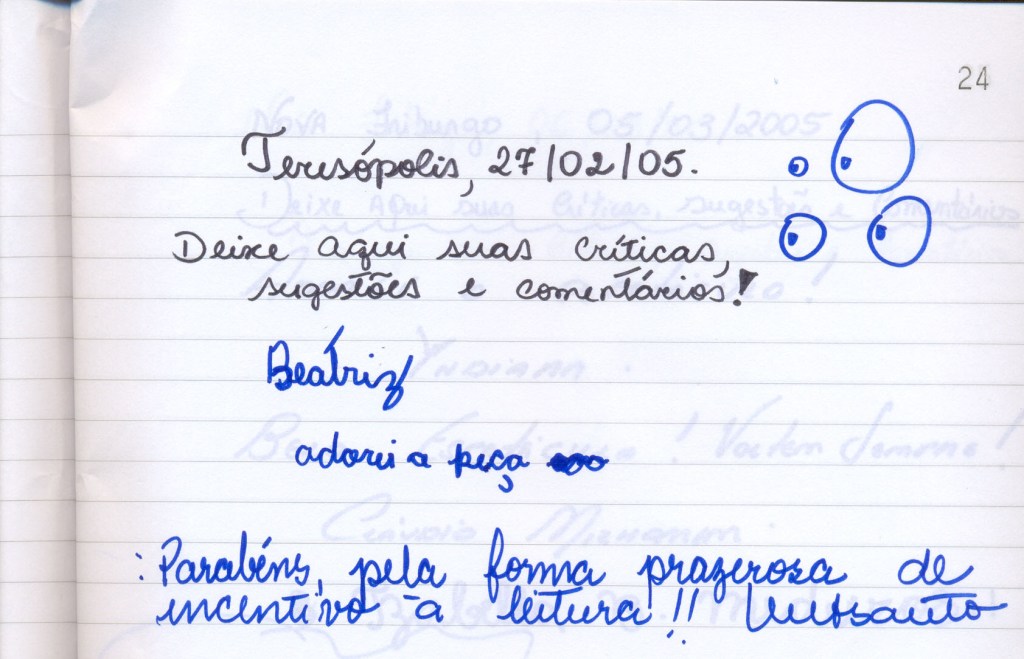 24
Teresópolis, 27/02/05.
Deixe aqui suas críticas,
sugestões e comentários!
Beatriz
adorei a peça
: Parabéns, pela forma prazerosa de
incentivo à leitura!!